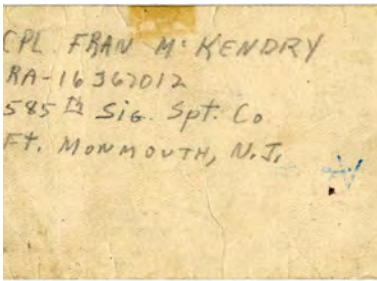 CPL FRAN McKENDRY
RA-16367012
585th Sig. Spt. Co
Ft. MONMOUTH, N.J.